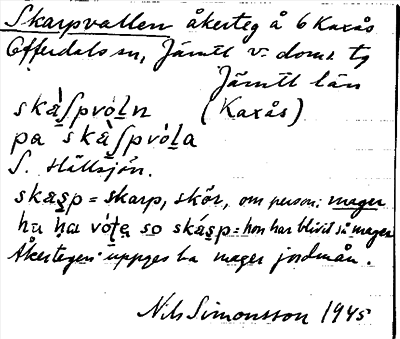 Skarpvallen åkerteg å 6 Kaxås
Offerdals sn, Jämtl v. doms tg
Jämtl län
skàʃpvóln (Kaxås)
pa skàʃpvóla
S. Hällsjön.
skaʂp = skarp, skör, om person: mager
hu ha vóte so skáʂp = hon har blivit så mager
Åkertegen uppges ha mager jordmån.
Nils Simonsson 1945